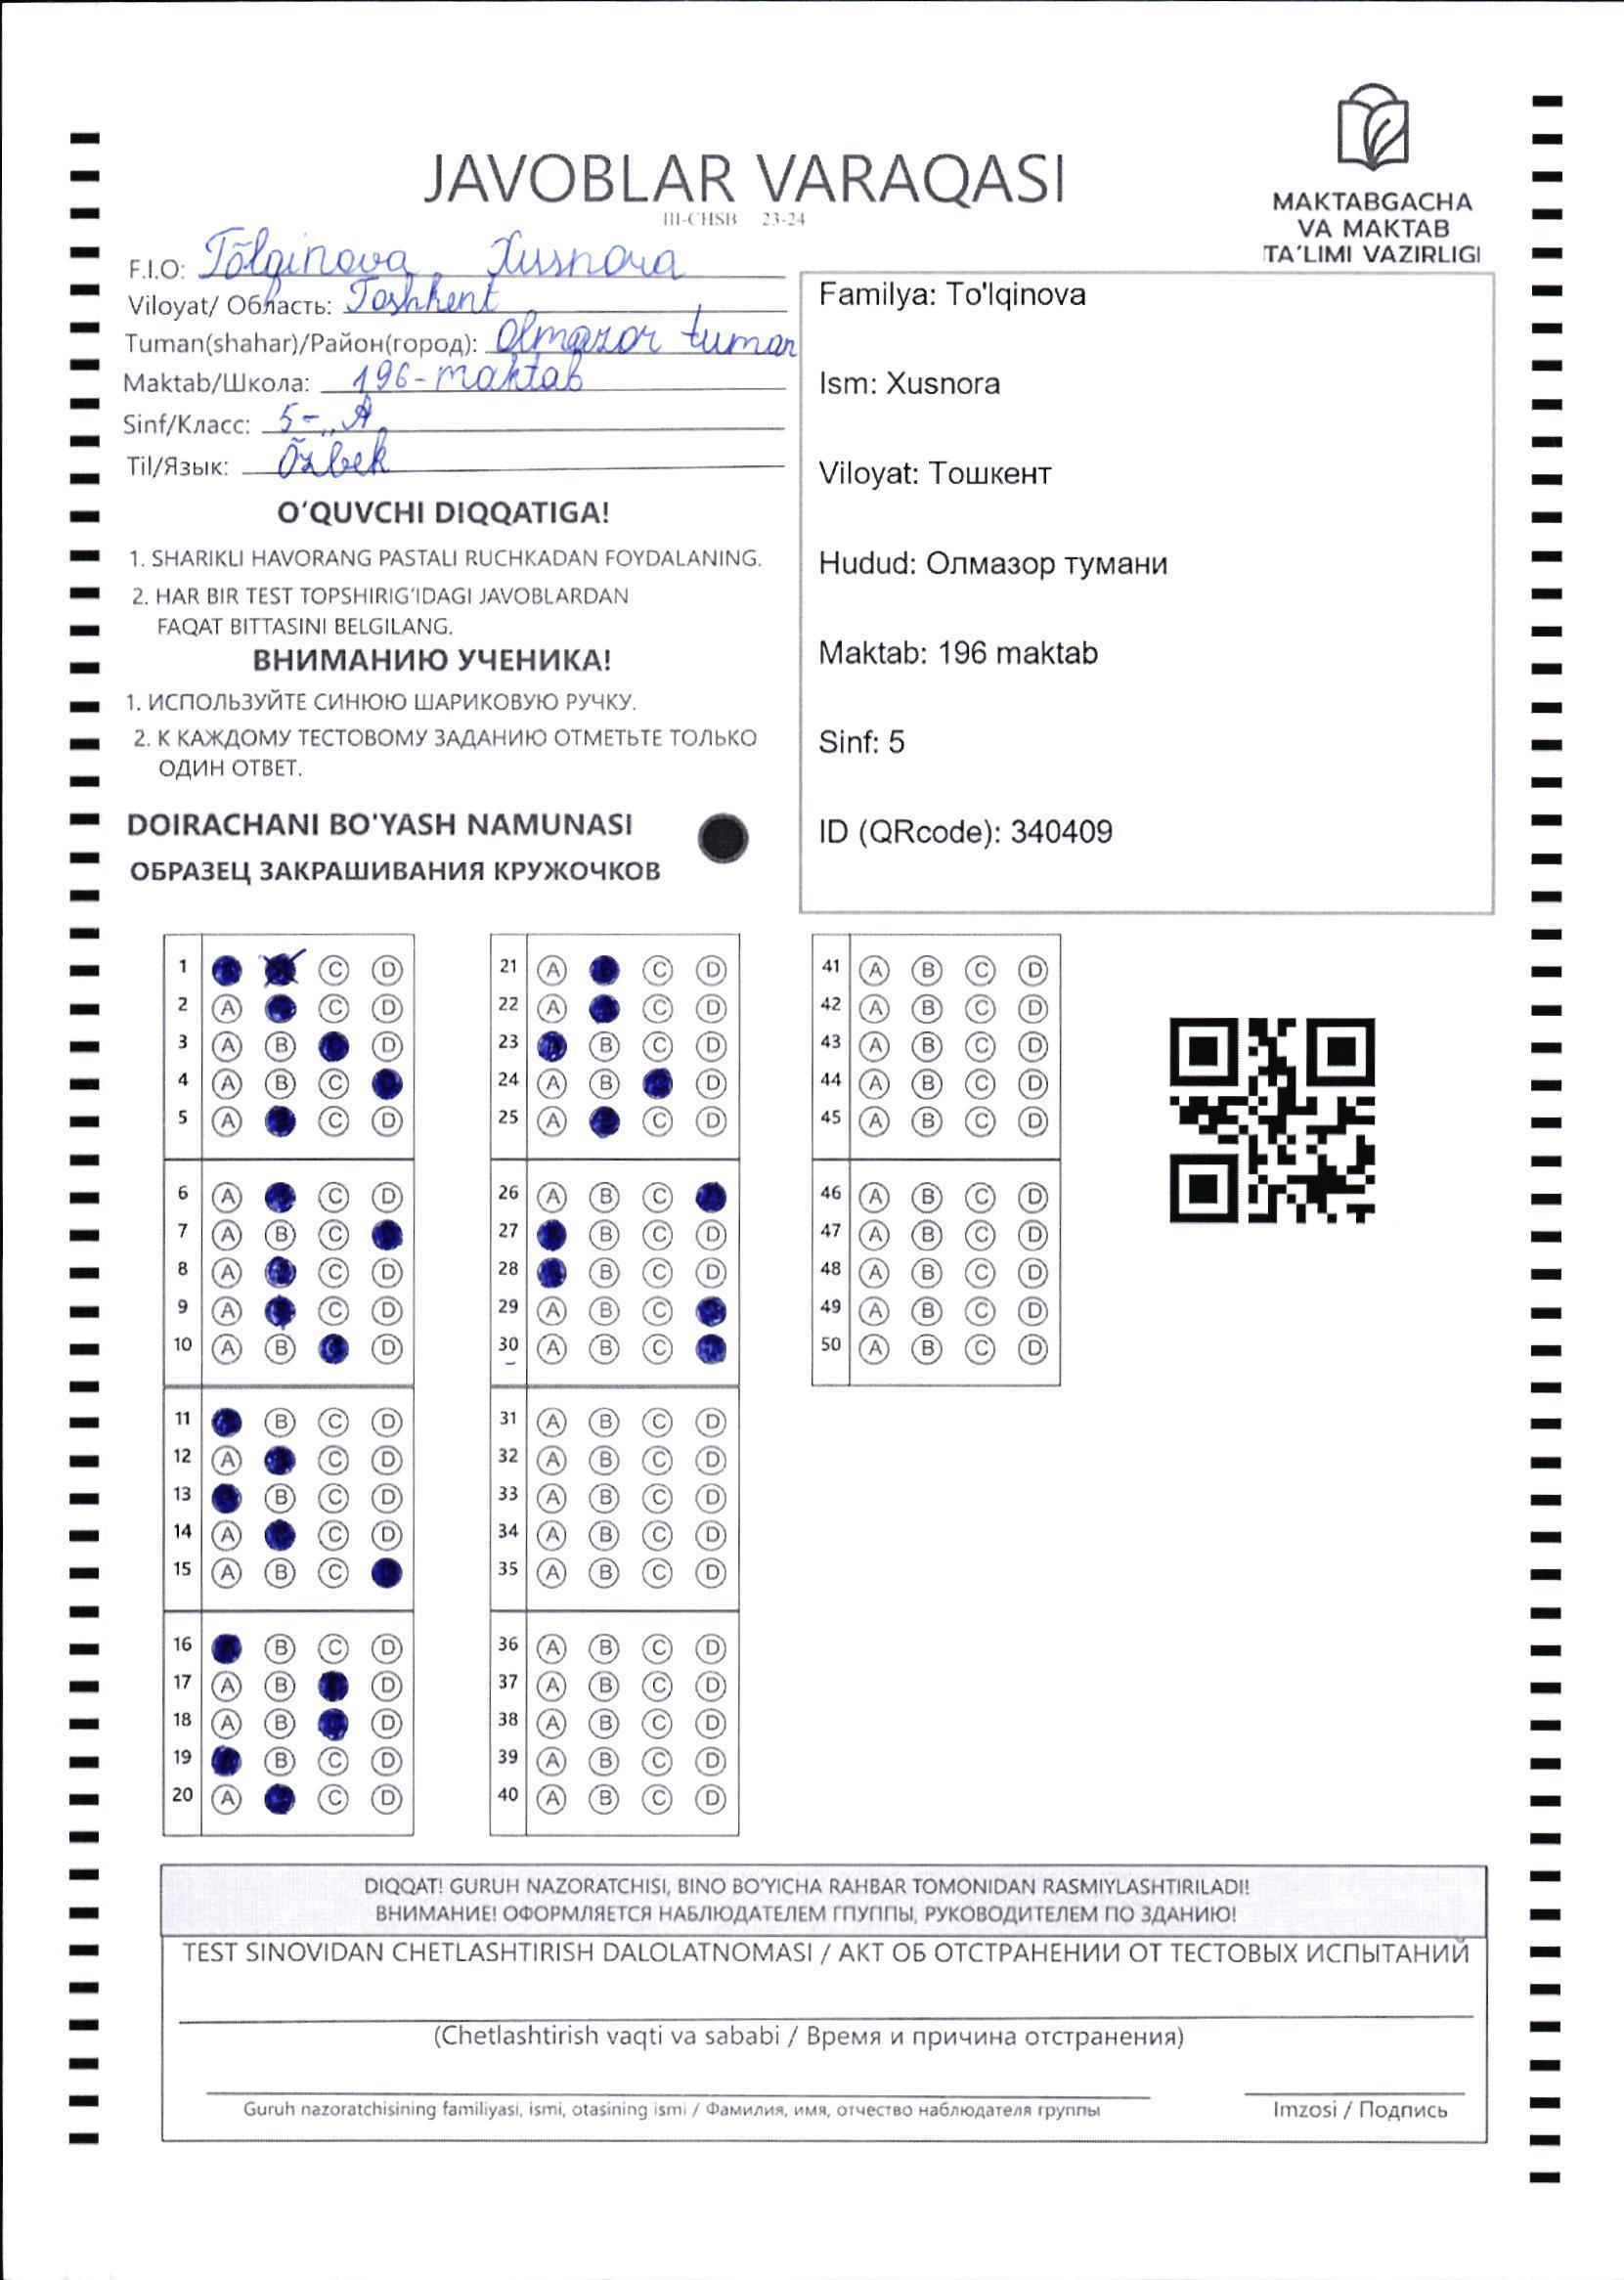 JAVOBLAR VARAQASI
III-CHSB 23-24
MAKTABGACHA
VA MAKTAB
TA'LIMI VAZIRLIGI
F.I.O: Tõlqinova Xusnora
Viloyat/ Область: Toshkent
Tuman(shahar)/Район(город): Olmazor tuman
Maktab/Школа: 196-maktab
Sinf/Класс: 5-„A
Til/Язык: Õzbek
O'QUVCHI DIQQATIGA!
1. SHARIKLI HAVORANG PASTALI RUCHKADAN FOYDALANING.
2. HAR BIR TEST TOPSHIRIG'IDAGI JAVOBLARDAN
FAQAT BITTASINI BELGILANG.
ВНИМАНИЮ УЧЕНИКА!
1. ИСПОЛЬЗУЙТЕ СИНЮЮ ШАРИКОВУЮ РУЧКУ.
2. К КАЖДОМУ ТЕСТОВОМУ ЗАДАНИЮ ОТМЕТЬТЕ ТОЛЬКО
ОДИН ОТВЕТ.
DOIRACHANI BO'YASH NAMUNASI
ОБРАЗЕЦ ЗАКРАШИВАНИЯ КРУЖОЧКОВ
Familya: To'lqinova
Ism: Xusnora
Viloyat: Тошкент
Hudud: Олмазор тумани
Maktab: 196 maktab
Sinf: 5
ID (QRcode): 340409
1 C D
2 A C D
3 A B D
4 A B C
5 A C D
6 A C D
7 A B C
8 A C D
9 A C D
10 A B D
11 B C D
12 A C D
13 B C D
14 A C D
15 A B C
16 B C D
17 A B D
18 A B D
19 B C D
20 A C D
21 A C D
22 A C D
23 B C D
24 A B D
25 A C D
26 A B C
27 B C D
28 B C D
29 A B C
30 A B C
31 A B C D
32 A B C D
33 A B C D
34 A B C D
35 A B C D
36 A B C D
37 A B C D
38 A B C D
39 A B C D
40 A B C D
41 A B C D
42 A B C D
43 A B C D
44 A B C D
45 A B C D
46 A B C D
47 A B C D
48 A B C D
49 A B C D
50 A B C D
DIQQAT! GURUH NAZORATCHISI, BINO BO'YICHA RAHBAR TOMONIDAN RASMIYLASHTIRILADI!
ВНИМАНИЕ! ОФОРМЛЯЕТСЯ НАБЛЮДАТЕЛЕМ ГПУППЫ, РУКОВОДИТЕЛЕМ ПО ЗДАНИЮ!
TEST SINOVIDAN CHETLASHTIRISH DALOLATNOMASI / АКТ ОБ ОТСТРАНЕНИИ ОТ ТЕСТОВЫХ ИСПЫТАНИЙ
(Chetlashtirish vaqti va sababi / Время и причина отстранения)
Guruh nazoratchisining familiyasi, ismi, otasining ismi / Фамилия, имя, отчество наблюдателя группы
Imzosi / Подпись